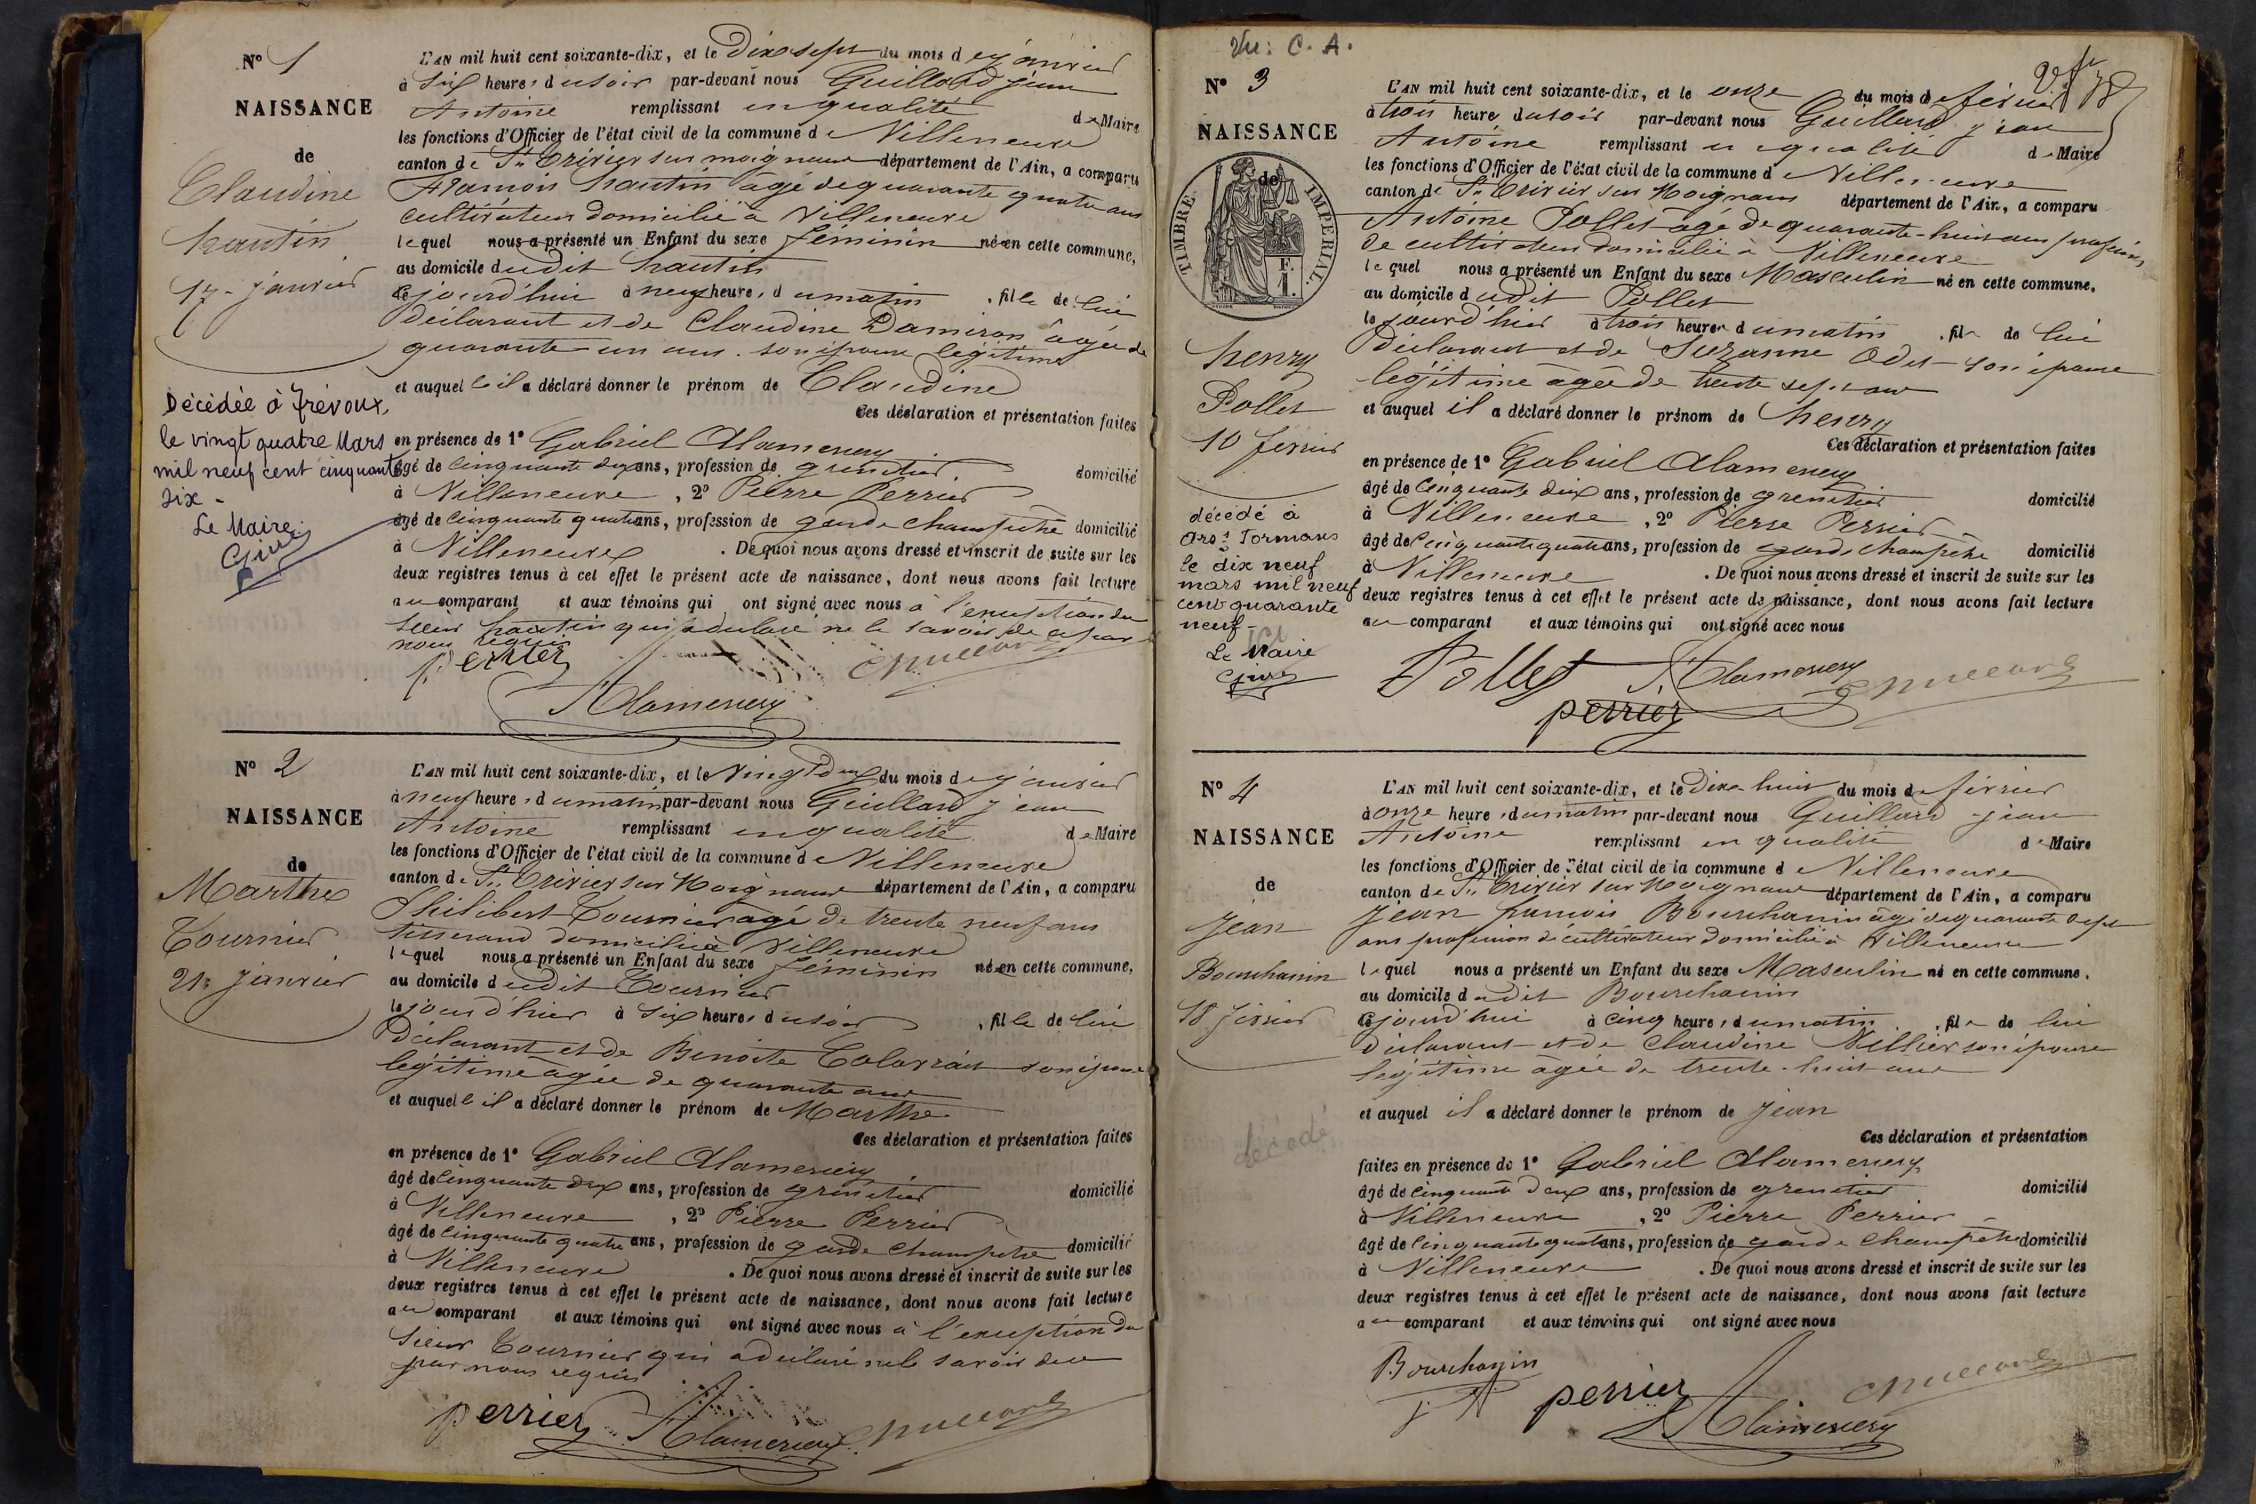 N° 1
NAISSANCE
de
Claudine
hautin
17 janvier
Décédée à Trévoux,
le vingt quatre Mars
mil neuf cent cinquante
six -
Le Maire
L'AN mil huit cent soixante-dix, et le Dix-sept du mois de janvier
à Six heures du soir par-devant nous Guillard jean
Antoine remplissant en qualité de Maire
les fonctions d'Officier de l'état civil de la commune de Villeneuve
canton de St Trivier sur moignans département de l'Ain, a comparu
François hautin âgé de quarante quatre ans
cultivateur domicilié à Villeneuve
lequel nous a présenté un Enfant du sexe féminin né en cette commune,
au domicile dudit hautin
cejourd'hui à neuf heures du matin, fille de lui
déclarant et de Claudine Damiron âgée de
quarante un ans son épouse légitime
et auquelle il a déclaré donner le prénom de Claudine
Ces déclaration et présentation faites
en présence de 1° Gabriel Alamercery
âgé de cinquante deux ans, profession de grenetier domicilié
à Villeneuve, 2° Pierre Perrier
âgé de cinquante quatre ans, profession de garde champêtre domicilié
à Villeneuve. De quoi nous avons dressé et inscrit de suite sur les
deux registres tenus à cet effet le présent acte de naissance, dont nous avons fait lecture
au comparant et aux témoins qui ont signé avec nous à l'exception du
sieur hautin qui a déclaré ne le savoir de ce par
nous requis
perrier
Alamercery
N° 2
NAISSANCE
de
Marthe
Tournier
21 janvier
L'AN mil huit cent soixante-dix, et le Vingt deux du mois de janvier
à neuf heures du matin par-devant nous Guillard jean
Antoine remplissant en qualité de Maire
les fonctions d'Officier de l'état civil de la commune de Villeneuve
canton de St Trivier sur Moignans département de l'Ain, a comparu
Philibert Tournier âgé de trente neuf ans
tisserand domicilié à Villeneuve
lequel nous a présenté un Enfant du sexe féminin né en cette commune,
au domicile dudit Tournier
le jour d'hier à six heures du soir, fille de lui
Déclarant et de Benoite son épouse
légitime âgée de quarante ans
et auquelle il a déclaré donner le prénom de Marthe
Ces déclaration et présentation faites
en présence de 1° Gabriel Alamercery
âgé de cinquante deux ans, profession de grenetier domicilié
à Villeneuve, 2° Pierre Perrier
âgé de cinquante quatre ans, profession de garde champêtre domicilié
à Villeneuve. De quoi nous avons dressé et inscrit de suite sur les
deux registres tenus à cet effet le présent acte de naissance, dont nous avons fait lecture
au comparant et aux témoins qui ont signé avec nous à l'exception du
sieur Tournier qui a déclaré ne le savoir de ce
par nous requis
perrier Alamercery
Vu: C. A.
N° 3
NAISSANCE
de
TIMBRE IMPERIAL
henry
Pollet
10 février
décédé à
Ars s Formans
le dix neuf
mars mil neuf
cent quarante
neuf -
Le Maire
L'AN mil huit cent soixante-dix, et le onze du mois de février
à trois heures du soir par-devant nous Guillard jean
Antoine remplissant en qualité de Maire
les fonctions d'Officier de l'état civil de la commune de Villeneuve
canton de St Trivier sur Moignans département de l'Ain, a comparu
Antoine Pollet âgé de quarante-huit ans profession
de cultivateur domicilié à Villeneuve
lequel nous a présenté un Enfant du sexe Masculin né en cette commune,
au domicile dudit Pollet
le jourd'hier à trois heures du matin, fils de lui
déclarant et de Suzanne Odet son épouse
légitime âgée de trente sept ans
et auquel il a déclaré donner le prénom de henry
Ces déclaration et présentation faites
en présence de 1° Gabriel Alamercery
âgé de cinquante deux ans, profession de grenetier domicilié
à Villeneuve, 2° Pierre Perrier
âgé de cinquante quatre ans, profession de garde champêtre domicilié
à Villeneuve. De quoi nous avons dressé et inscrit de suite sur les
deux registres tenus à cet effet le présent acte de naissance, dont nous avons fait lecture
au comparant et aux témoins qui ont signé avec nous
Pollet Alamercery
perrier
N° 4
NAISSANCE
de
Jean
Bourchanin
18 février
décédé
L'AN mil huit cent soixante-dix, et le Dix-huit du mois de février
à onze heures du matin par-devant nous Guillard jean
Antoine remplissant en qualité de Maire
les fonctions d'Officier de l'état civil de la commune de Villeneuve
canton de St Trivier sur Moignans département de l'Ain, a comparu
Jean françois Bourchanin âgé de quarante sept
ans profession de cultivateur domicilié à Villeneuve
lequel nous a présenté un Enfant du sexe Masculin né en cette commune,
au domicile dudit Bourchanin
cejourd'hui à cinq heures du matin, fils de lui
déclarant et de Claudine Vellier son épouse
légitime âgée de trente-huit ans
et auquel il a déclaré donner le prénom de Jean
Ces déclaration et présentation
faites en présence de 1° Gabriel Alamercery
âgé de cinquante deux ans, profession de grenetier domicilié
à Villeneuve, 2° Pierre Perrier
âgé de cinquante quatre ans, profession de garde champêtre domicilié
à Villeneuve. De quoi nous avons dressé et inscrit de suite sur les
deux registres tenus à cet effet le présent acte de naissance, dont nous avons fait lecture
au comparant et aux témoins qui ont signé avec nous
Bourchanin
perrier
Alamercery